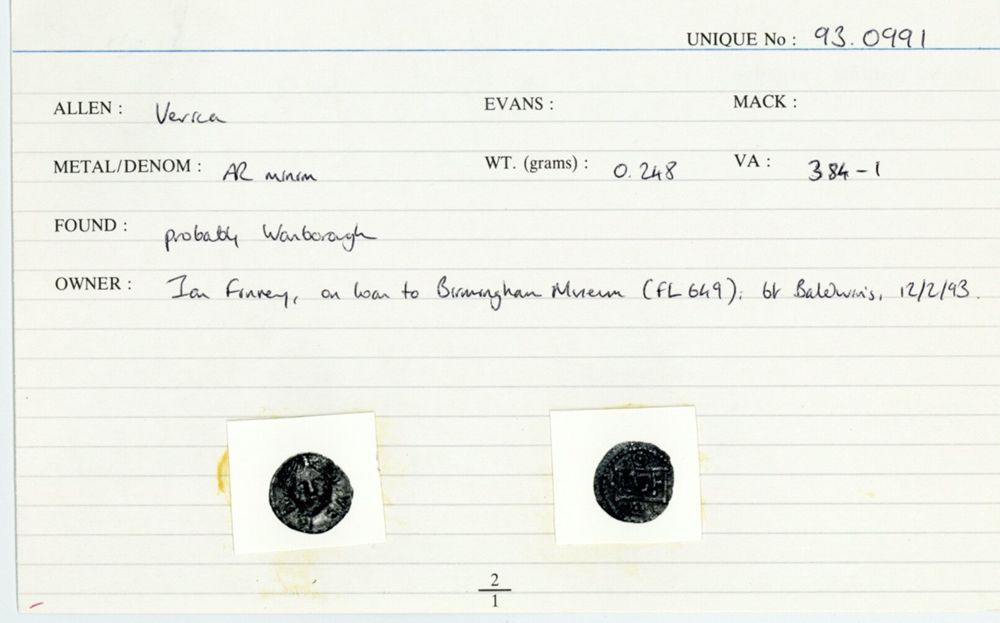 UNIQUE No : 93.0991
ALLEN : Verica EVANS : MACK :
METAL/DENOM : AR minim WT. (grams) : 0.248 VA : 384-1
FOUND : probably Wanborough
OWNER : Ian Finney, on loan to Birmingham Museum (FL 649); bt Baldwin's, 12/2/93.
2
1